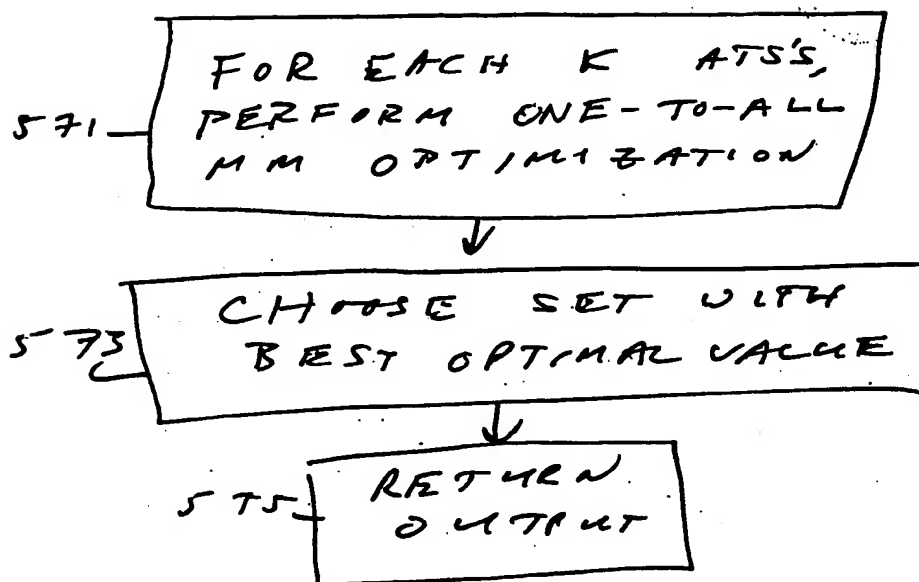 FOR EACH K ATS'S,
571
PERFORM ONE-TO-ALL
MM OPTIMIZATION
CHOOSE SET WITH
573
BEST OPTIMAL VALUE
RETURN
575
OUTPUT